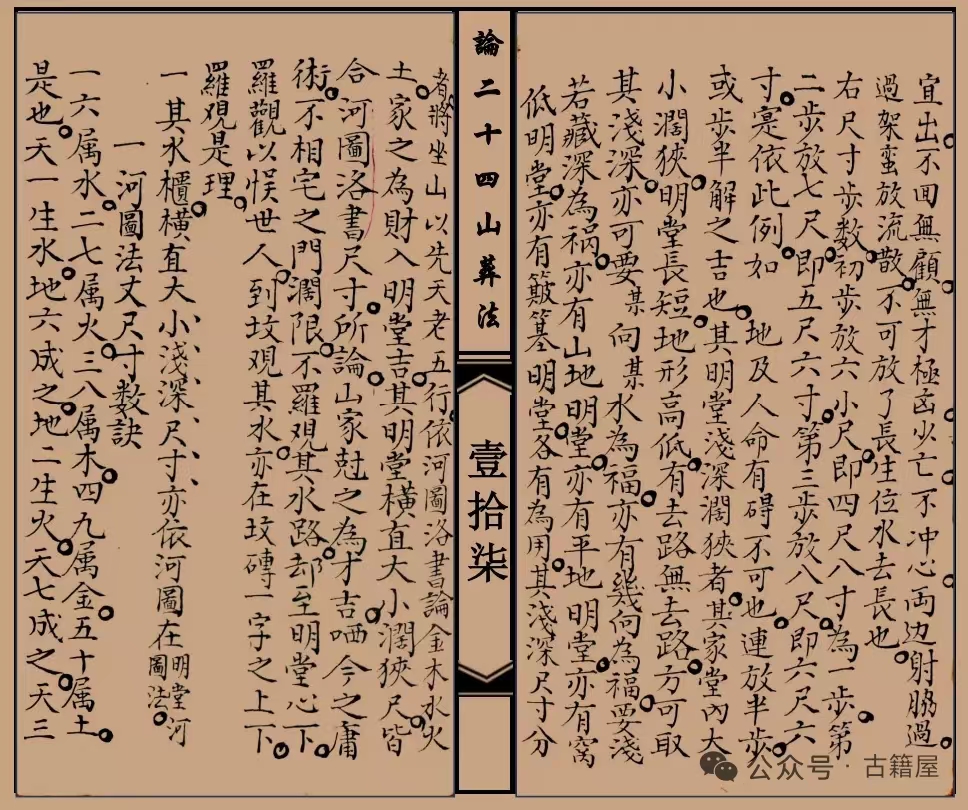 宜出不回無顧無才極凶少亡不冲心両边射脇過
過架蛮放流散不可放了長生位水去長也
右尺寸步数初步放六小尺即四尺八寸為一步第
二步放七尺即五尺六寸第三步放八尺即六尺六
寸寔依此例如地及人命有碍不可也連放半步
或步半解之吉也其明堂淺深濶狹者其家堂內大
小濶狹明堂長短地形高低有去路無去路方可取
其淺深亦可要某向某水為福亦有幾向為福要淺
若藏深為禍亦有山地明堂亦有平地明堂亦有窩
低明堂亦有簸箕明堂各有為用其淺深尺寸分
論二十四山葬法
壹拾柒
者將坐山以先天老五行依河圖洛書論金木水火
土家之為財入明堂吉其明堂橫直大小濶狹尺皆
合河圖洛書尺寸所論山家尅之為才吉哂今之庸
術不相宅之門濶限不羅覌其水路却至明堂心下
羅觀以悮世人到坟覌其水亦在坟磚一字之上下
羅覌是理
一其水櫃橫直大小淺深尺寸亦依河圖在明堂河圖法
一河圖法丈尺寸数訣
一六属水二七属火三八属木四九属金五十属土
是也天一生水地六成之地二生火天七成之天三
公众号·古籍屋